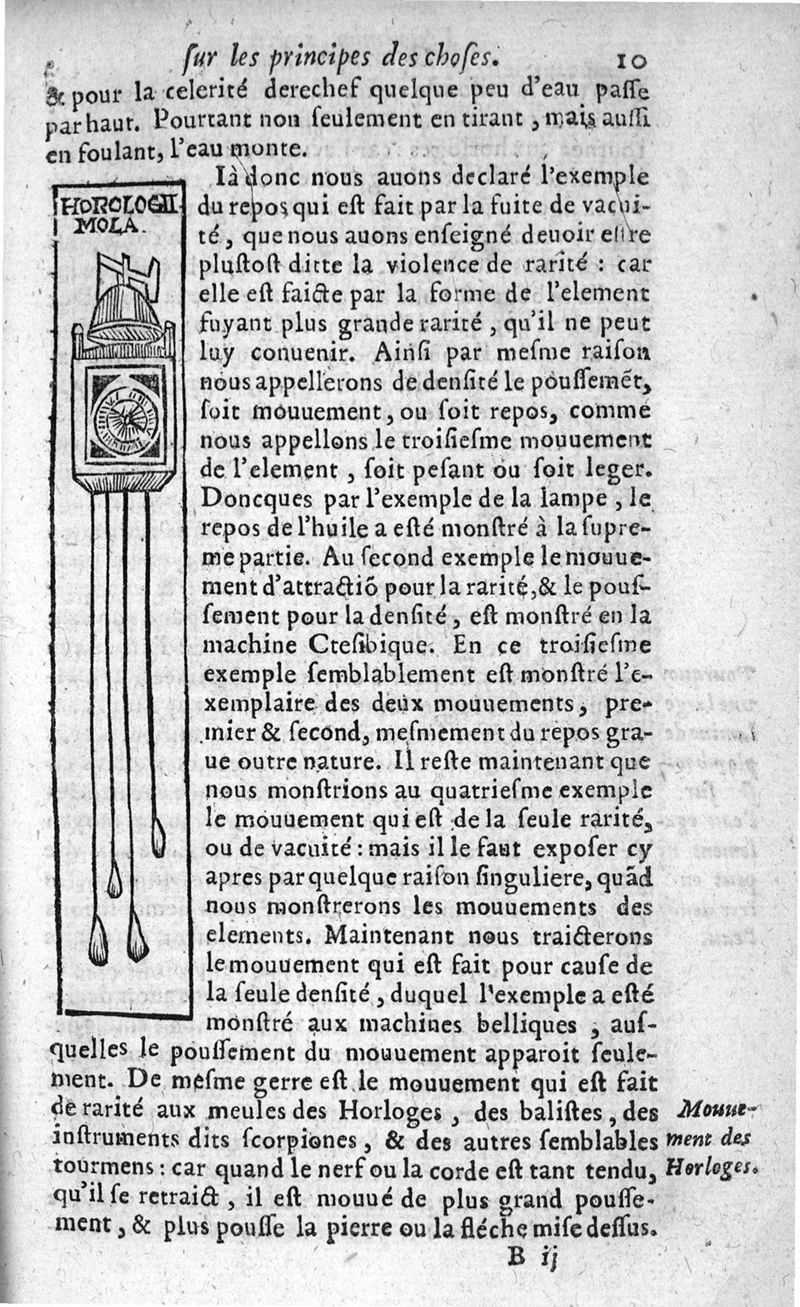 ſur les principes des choſes. 10
& pour la celerité derechef quelque peu d'eau paſſe
par haut. Pourtant non ſeulement en tirant, mais auſſi
en foulant, l'eau monte.
HOROLOGII
MOLA.
Ià donc nous auons declaré l'exemple
du repos qui eſt fait par la fuite de vacui-
té, que nous auons enſeigné deuoir eſtre
pluſtoſt ditte la violence de rarité : car
elle eſt faicte par la forme de l'element
fuyant plus grande rarité, qu'il ne peut
luy conuenir. Ainſi par meſme raiſon
nous appellerons de denſité le pouſſemẽt,
ſoit mouuement, ou ſoit repos, comme
nous appellons le troiſieſme mouuement
de l'element, ſoit peſant ou ſoit leger.
Doncques par l'exemple de la lampe, le
repos de l'huile a eſté monſtré à la ſupre-
me partie. Au ſecond exemple le mouue-
ment d'attractiõ pour la rarité, & le pouſ-
ſement pour la denſité, eſt monſtré en la
machine Cteſibique. En ce troiſieſme
exemple ſemblablement eſt monſtré l'e-
xemplaire des deux mouuements, pre-
mier & ſecond, meſmement du repos gra-
ue outre nature. Il reſte maintenant que
nous monſtrions au quatrieſme exemple
le mouuement qui eſt de la ſeule rarité,
ou de vacuité : mais il le faut expoſer cy
apres par quelque raiſon ſinguliere, quãd
nous monſtrerons les mouuements des
elements. Maintenant nous traicterons
le mouuement qui eſt fait pour cauſe de
la ſeule denſité, duquel l'exemple a eſté
monſtré aux machines belliques, auſ-
quelles le pouſſement du mouuement apparoit ſeule-
ment. De meſme gerre eſt le mouuement qui eſt fait
de rarité aux meules des Horloges, des baliſtes, des
inſtruments dits ſcorpiones, & des autres ſemblables
tourmens : car quand le nerf ou la corde eſt tant tendu,
qu'il ſe retraict, il eſt mouué de plus grand pouſſe-
ment, & plus pouſſe la pierre ou la fléche miſe deſſus.
Mouue-
ment des
Horloges.
B ij